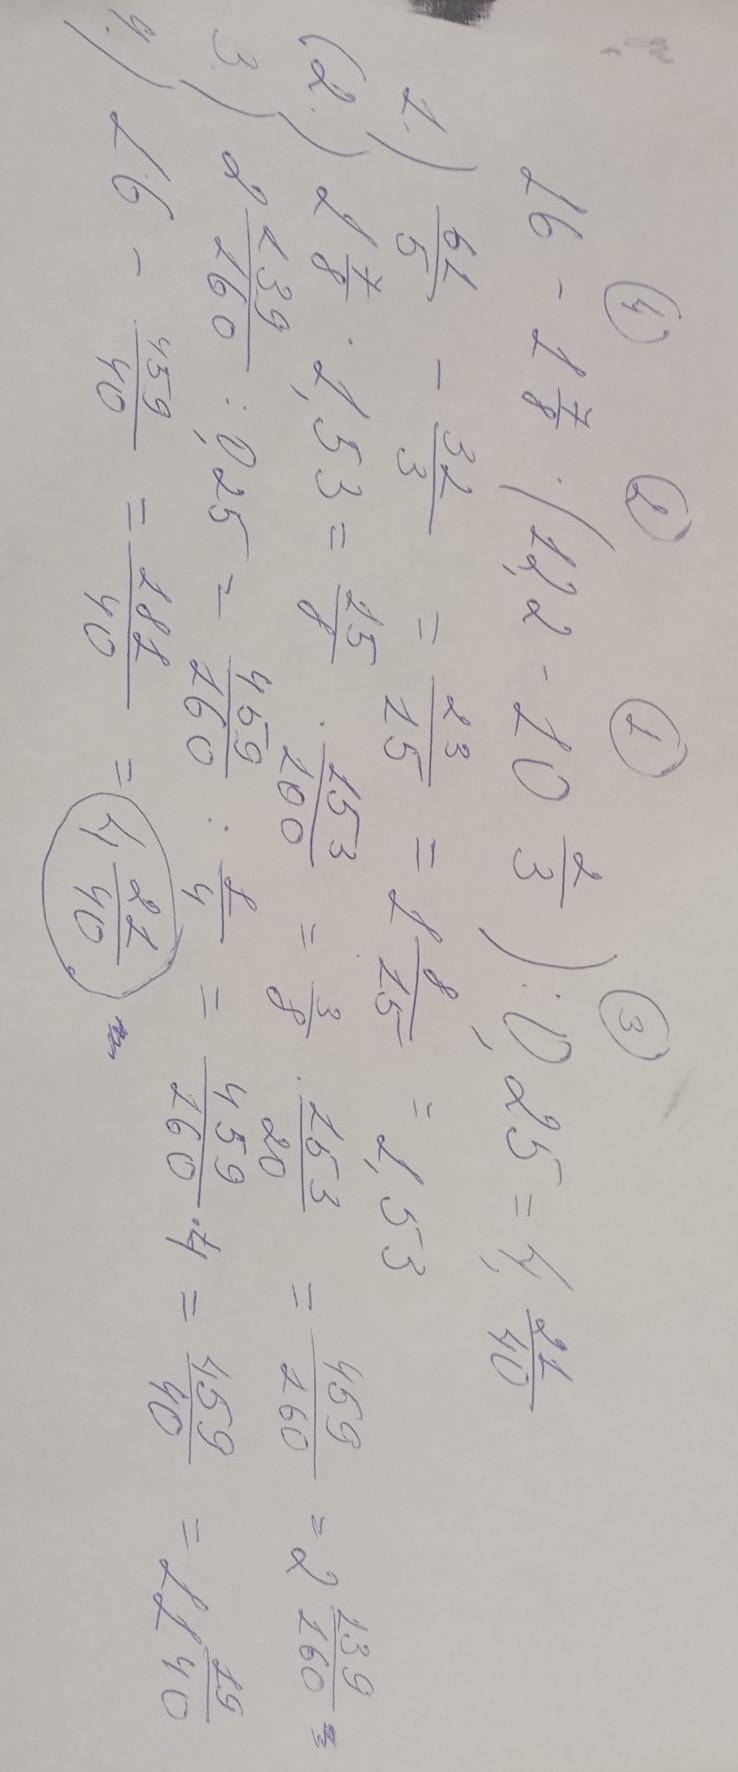 ④ ② ① ③
16 - 1 7/8 · (12,2 - 10 2/3) : 0,25 = 4, 21/40
1.) 61/5 - 32/3 = 23/15 = 1 8/15 = 1,53
(2.) 1 7/8 · 1,53 = 15/8 · 153/100 = 3/8 · 153/20 = 459/160 = 2 139/160
3.) 2 139/160 : 0,25 = 459/160 : 1/4 = 459/160 · 4 = 459/40 = 11 19/40
4.) 16 - 459/40 = 181/40 = 4 21/40